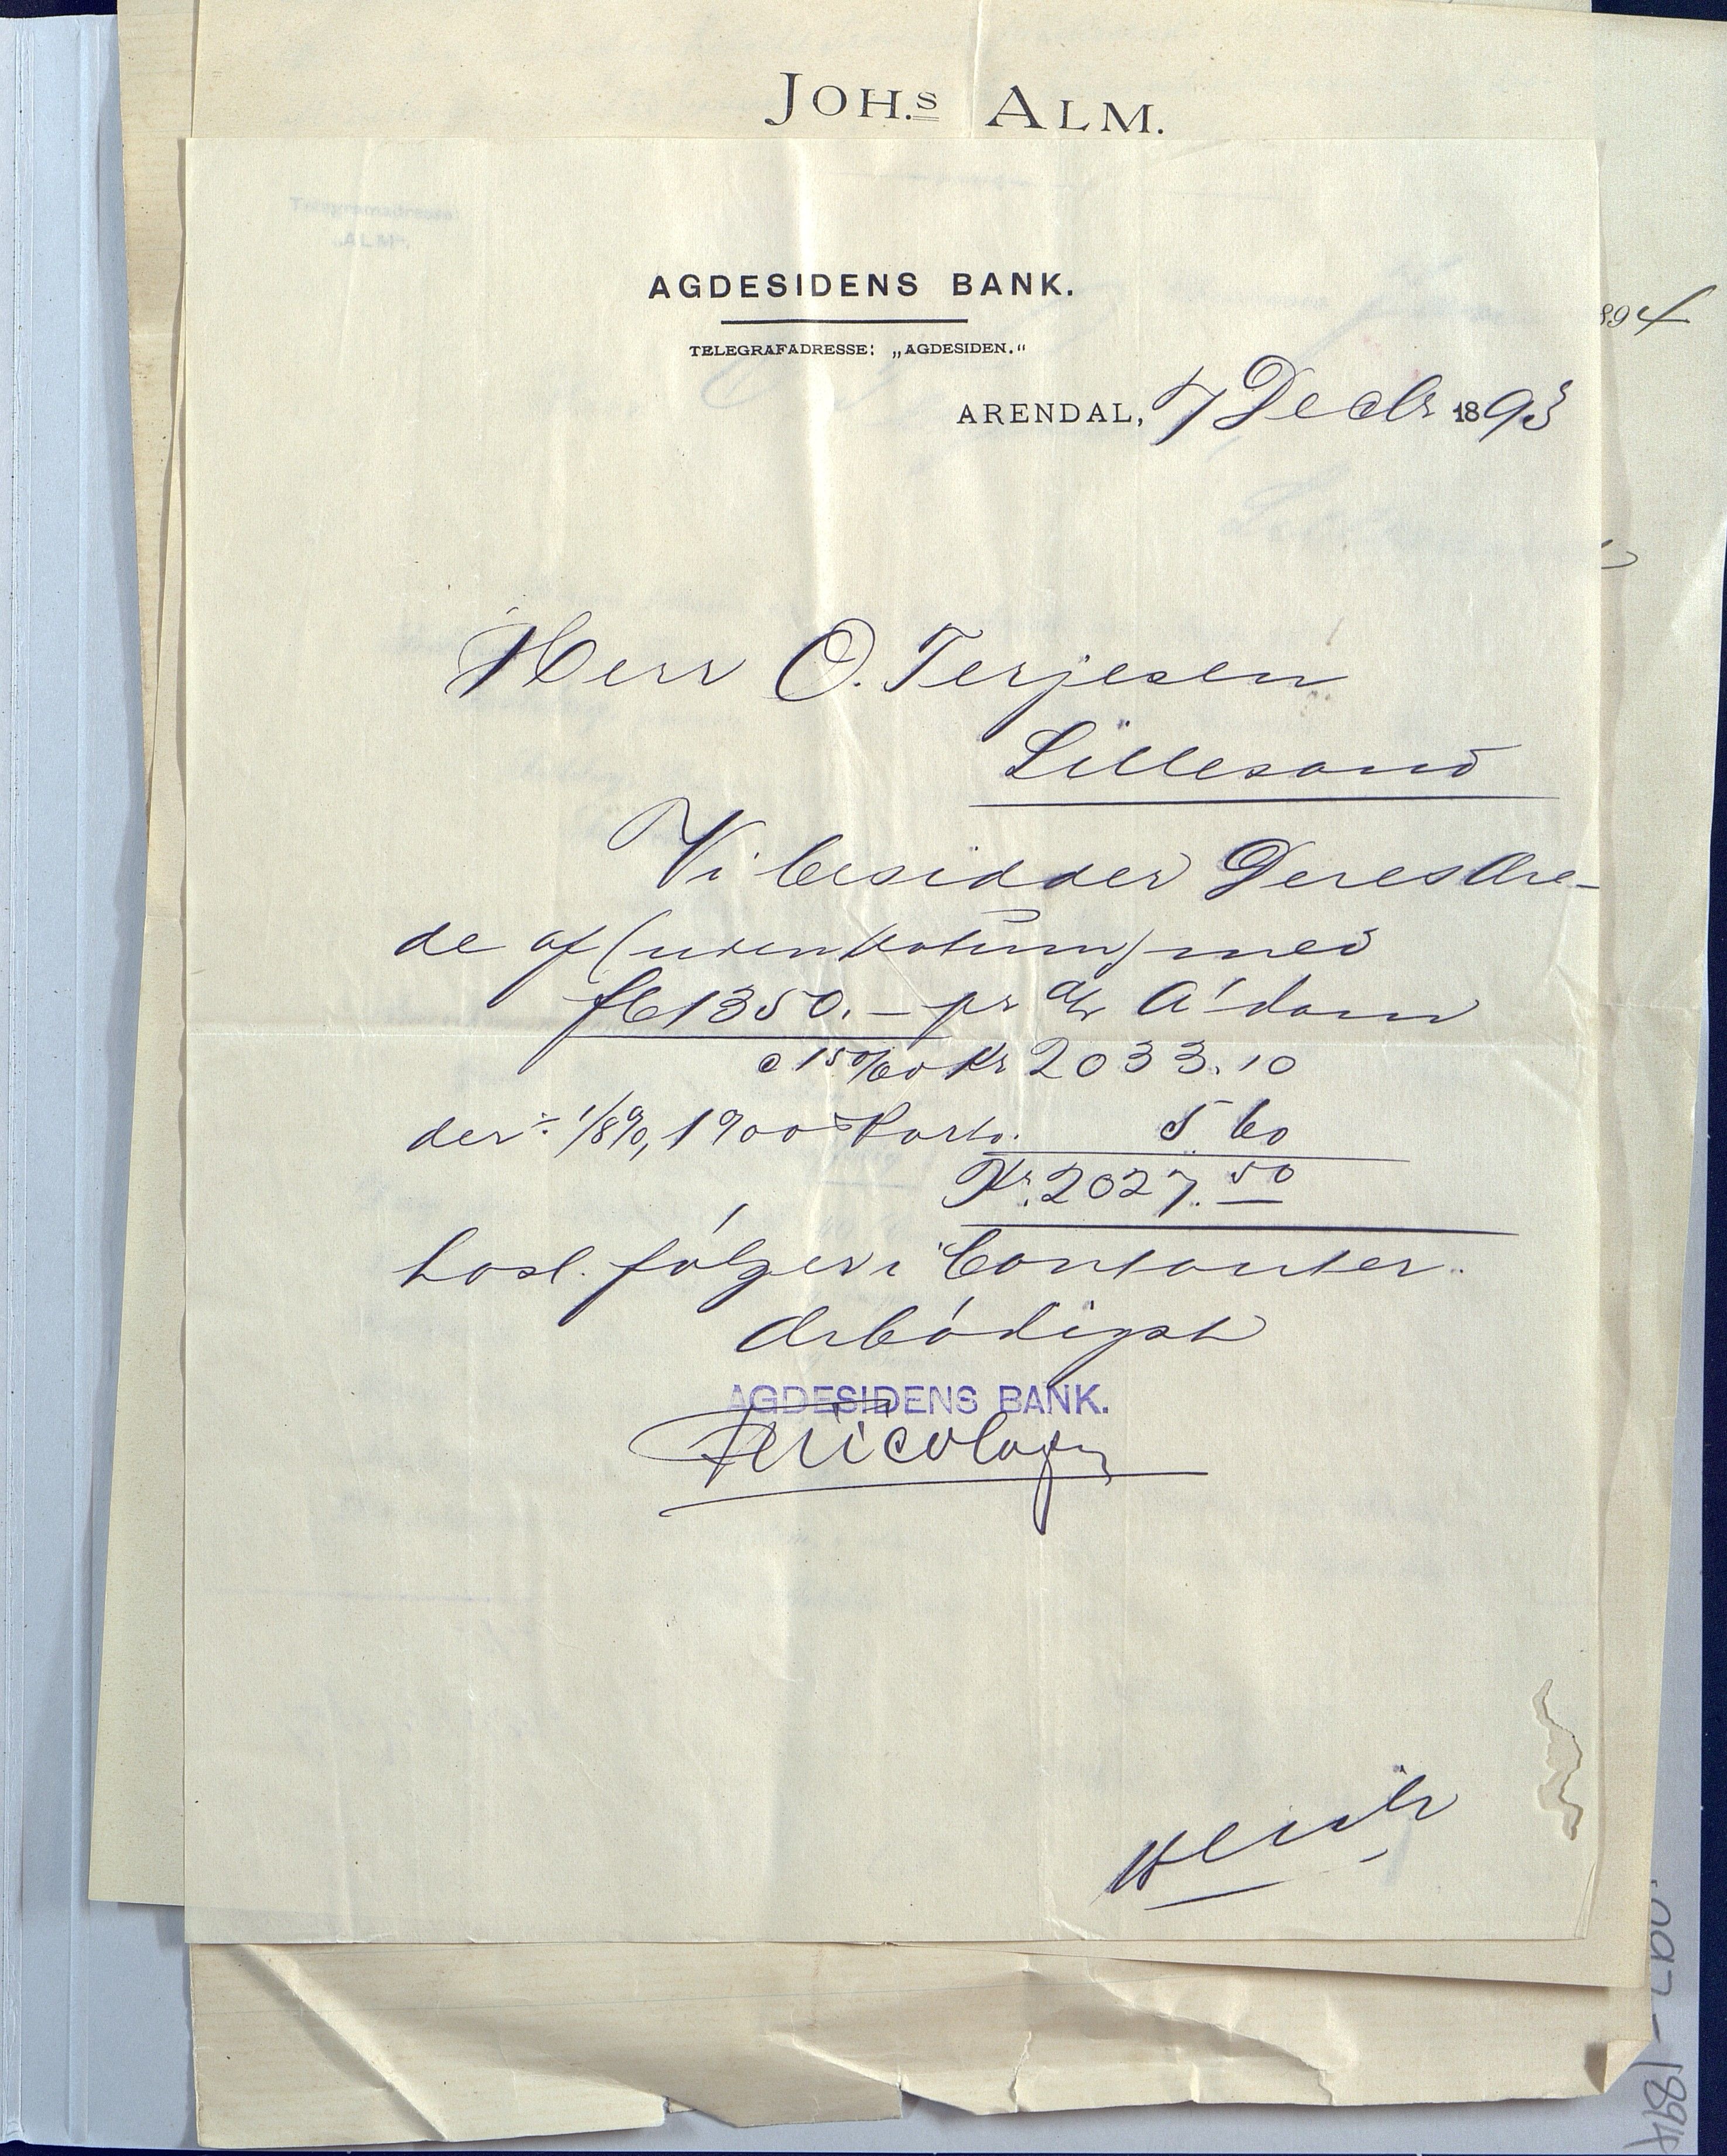 JOH.s ALM.
AGDESIDENS BANK.
TELEGRAFADRESSE: „AGDESIDEN.“
894
ARENDAL, 7 Decbr 1893
Herr O. Terjesen
Lillesand
Vi besidder Deres Ære-
de af (uden datum) med
fl 1350.– pr a/ A'dam
Kr 2033.10
der ÷ 1/8%, Porto. 5 60
Kr. 2027.50
hosl. følger i Contanter.
Ærbødigst
AGDESIDENS BANK.
1894